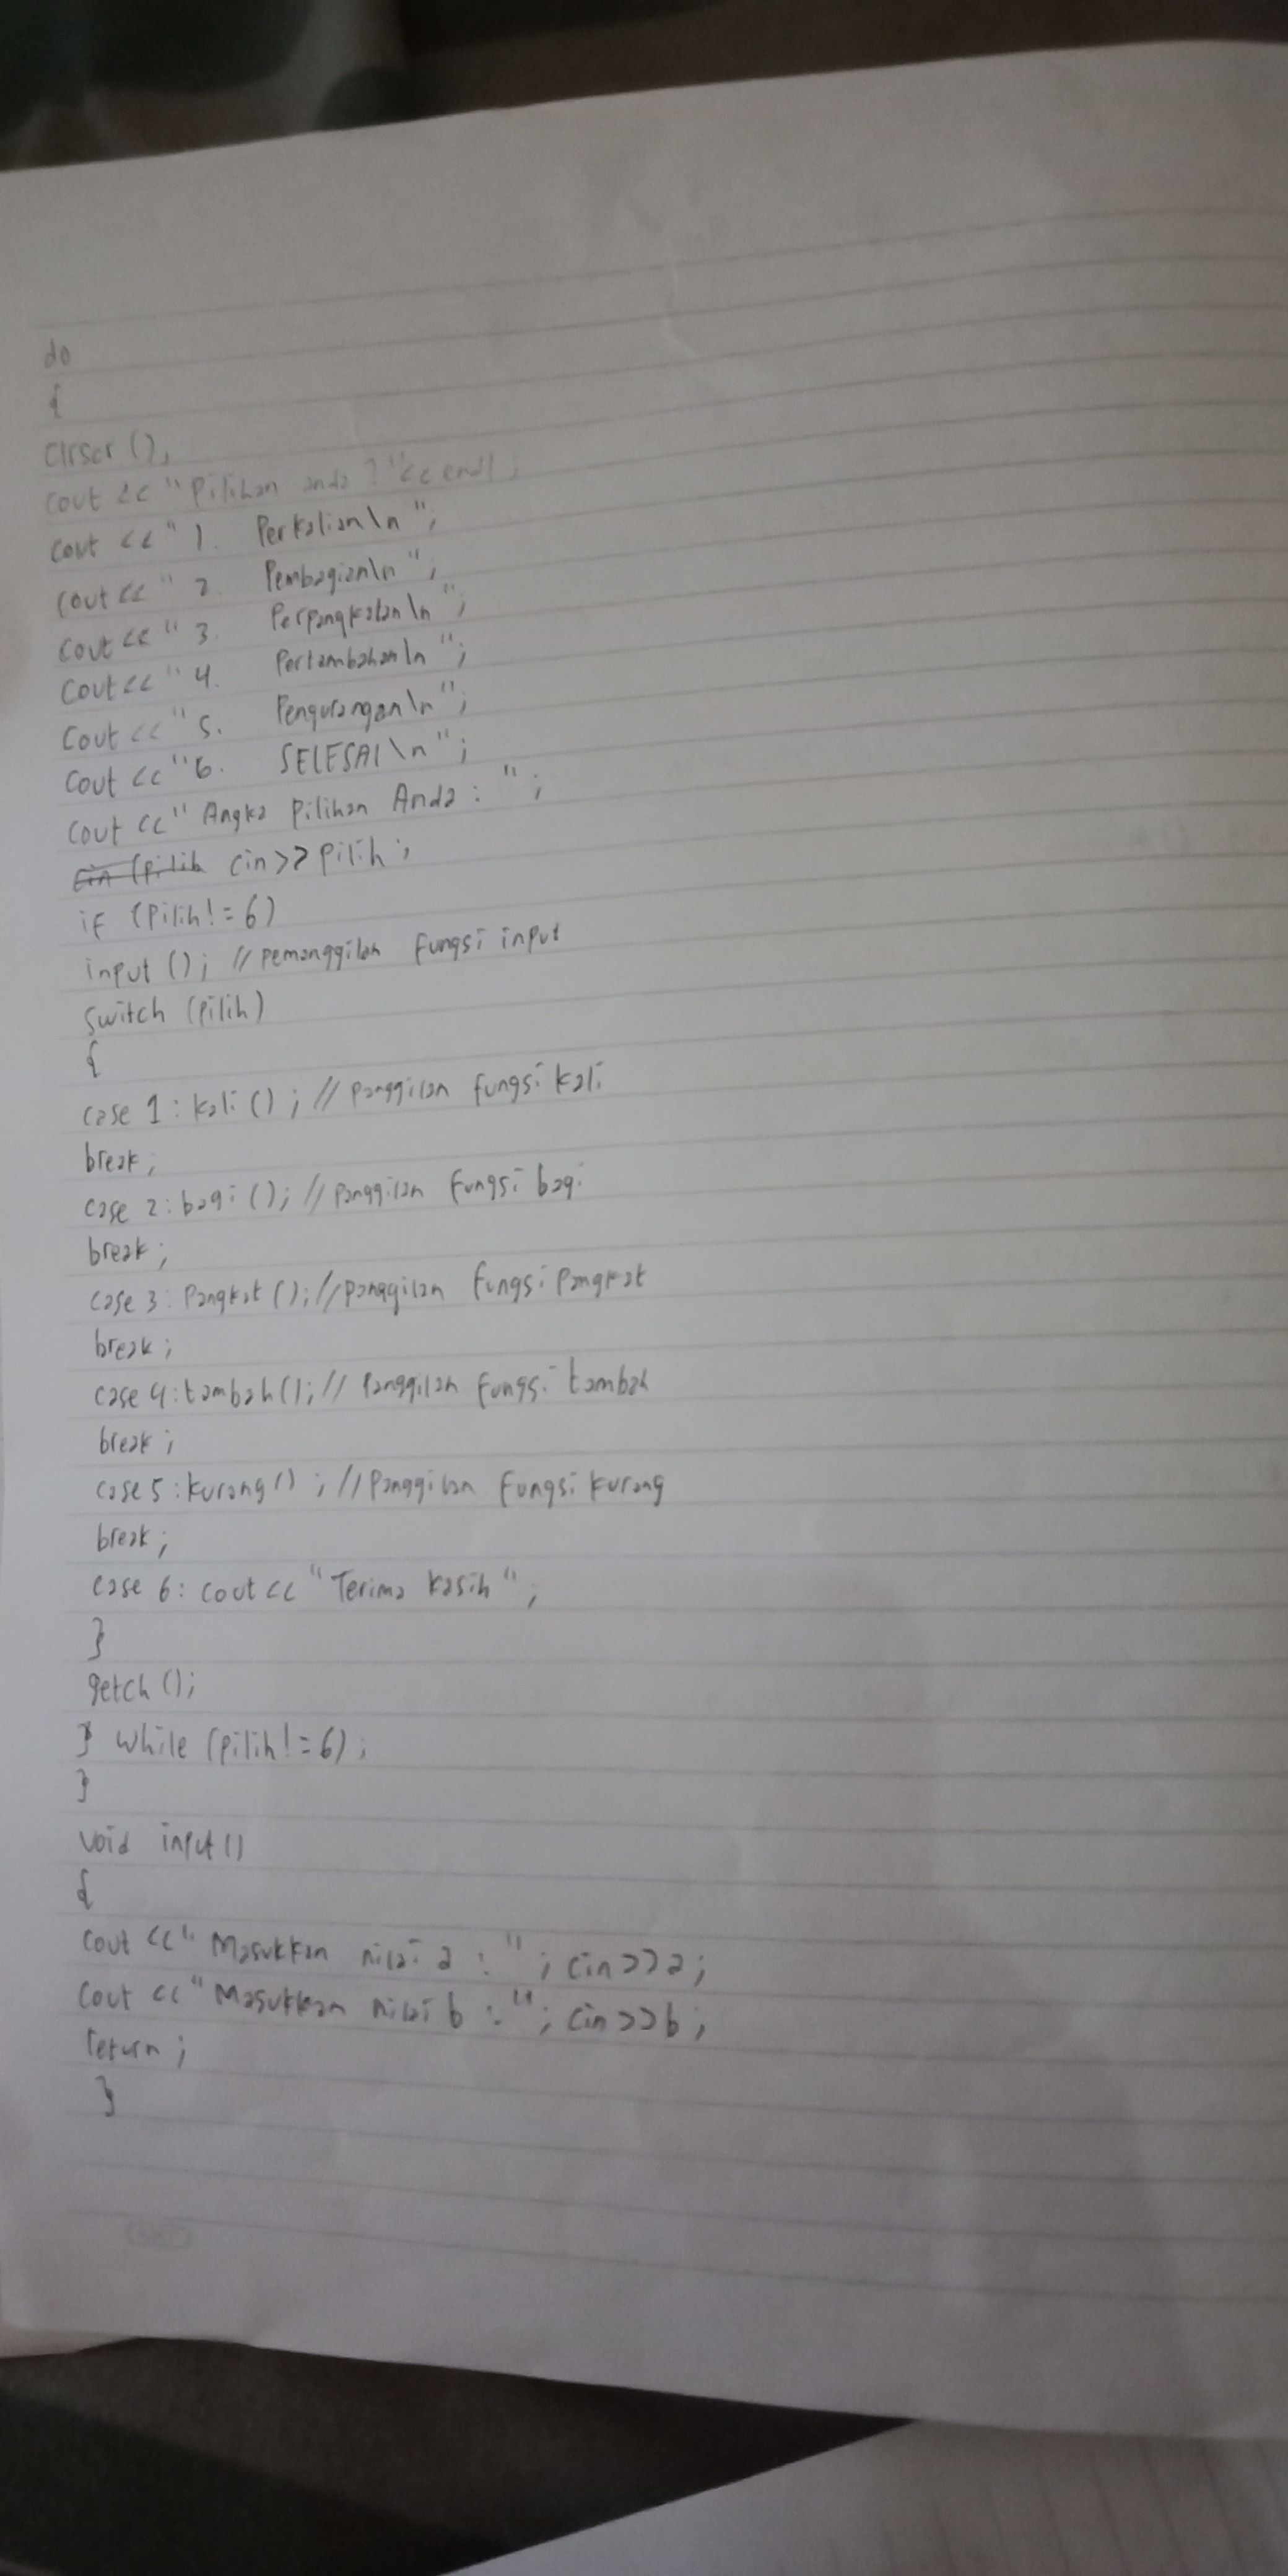 do
{
clrscr ();
cout << "Pilihan anda ? "<< endl ;
cout << " 1. Perkalian\n ";
cout << " 2. Pembagian\n ";
cout << " 3. Perpangkatan\n ";
cout << " 4. Pertambahan\n ";
cout << " 5. Pengurangan\n ";
cout << "6. SELESAI\n ";
cout << " Angka pilihan Anda : ";
cin (pilih cin>> pilih ;
if (pilih!=6)
input (); // pemanggilan fungsi input
switch (pilih)
{
case 1 : kali () ; // panggilan fungsi kali
break;
case 2 : bagi (); // panggilan fungsi bagi
break;
case 3 : pangkat (); //panggilan fungsi pangkat
break;
case 4 : tambah(); // panggilan fungsi tambah
break;
case 5 : kurang() ; // panggilan fungsi kurang
break;
case 6 : cout << "Terima kasih" ;
}
getch ();
} while (pilih!=6);
}
void input ()
{
cout << " Masukkan nilai a : " ; cin>>a ;
cout << " Masukkan nilai b : "; cin >>b ;
return ;
}